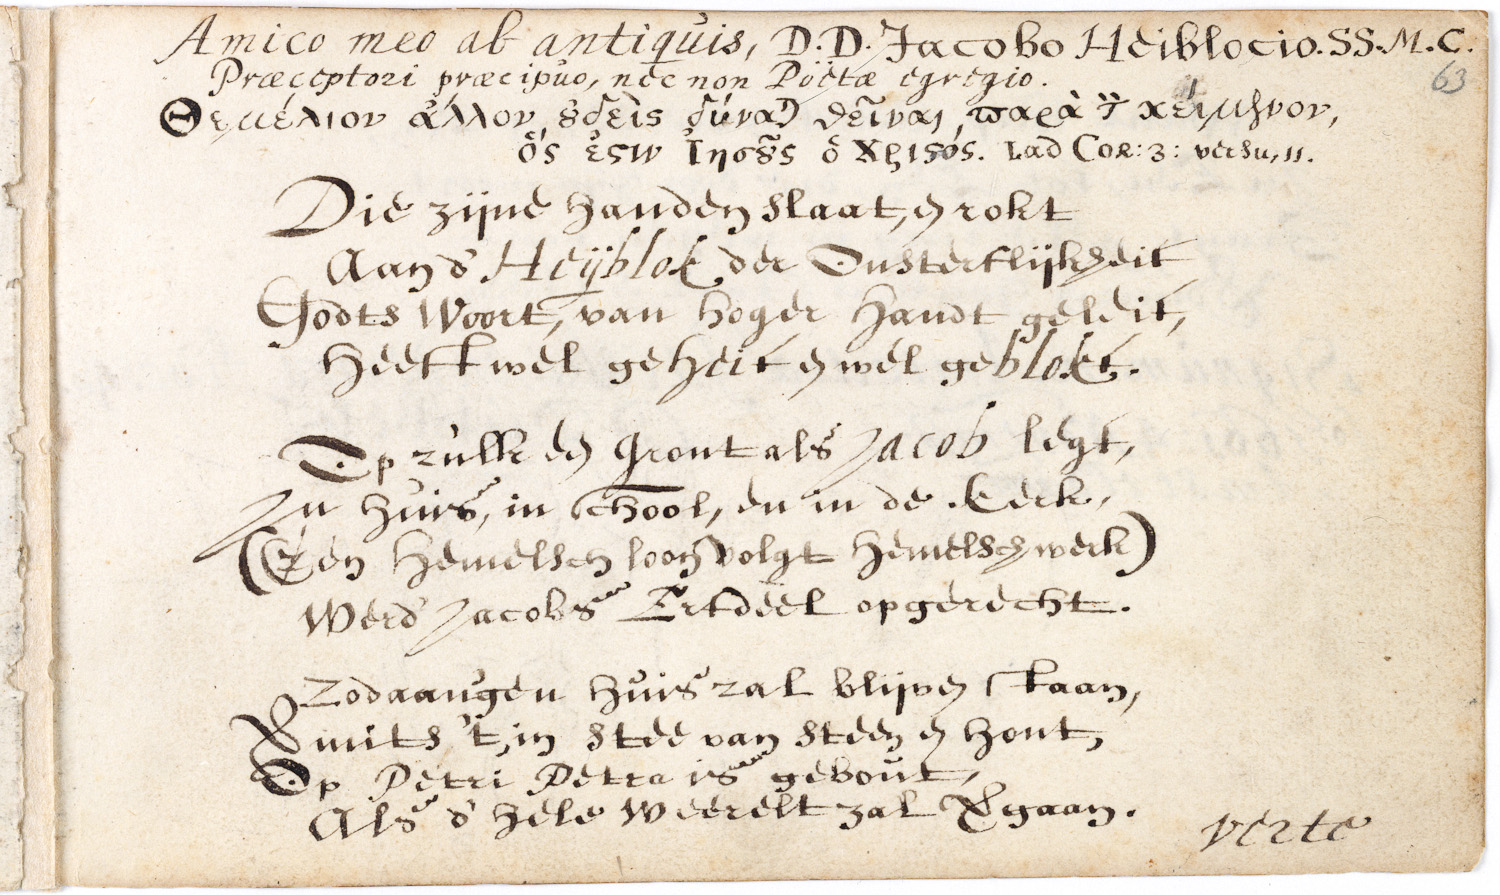 Amico meo ab antiquis, D.D. Jacobo Heiblocio. SS. M. C.
63
Præceptori præcipuo, nec non Pöetæ egregio.
Θεμέλιον ἄλλον ȣ̓δεὶς δύναται θεῖναι, παρὰ τ̀ κείμενον,
ὅς ἐςιν Ἰησȣ͂ς ὁ Χριςός. 1 ad Cor: 3: versu, 11.
Die zijne handen slaat, en rokt
Aan d' Heÿblok der Onsterflijkheit
Godts Woort, van hoger handt geleit,
Heeft wel geheit en wel geblokt.
Op zulk en gront als Jacob legt,
In huis, in school, en in de Kerk,
(Een hemelsch loon volgt hemelsch werk)
Werd Jacobs Erfdeel opgerecht.
Zodaangen huis zal blijven staan,
Vermits 't, in stee van steen en hout,
Op Petri Petra is gebout,
Als d' hele Weerelt zal vergaan.
verte